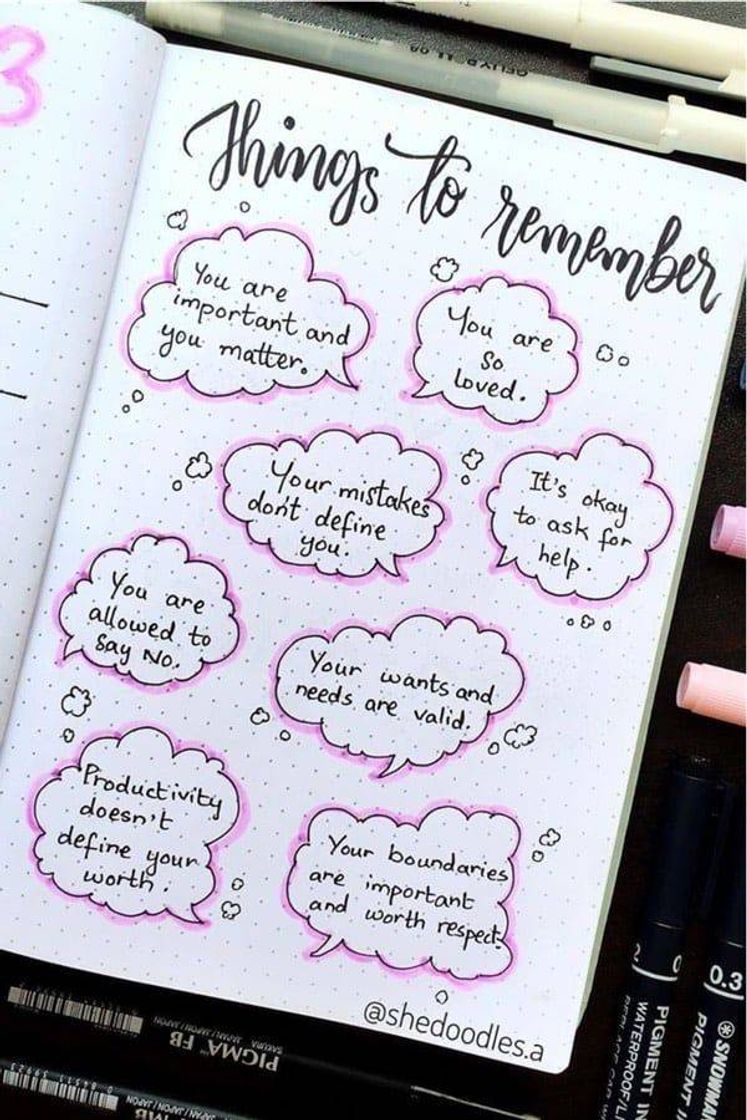 3
GELLY R 08
Things to remember
You are
important and
you matter.
You are
so
loved.
Your mistakes
don't define
you.
It's okay
to ask for
help.
You are
allowed to
say No.
Your wants and
needs are valid.
Productivity
doesn't
define your
worth.
Your boundaries
are important
and worth respect.
@shedoodles.a
PIGMA FB
SAKURA JAPAN/JAPON
MB
JAPAN/JAPON
PIGMENT
WATERPROOF
0.3
SNOWMAN
PIGMENT